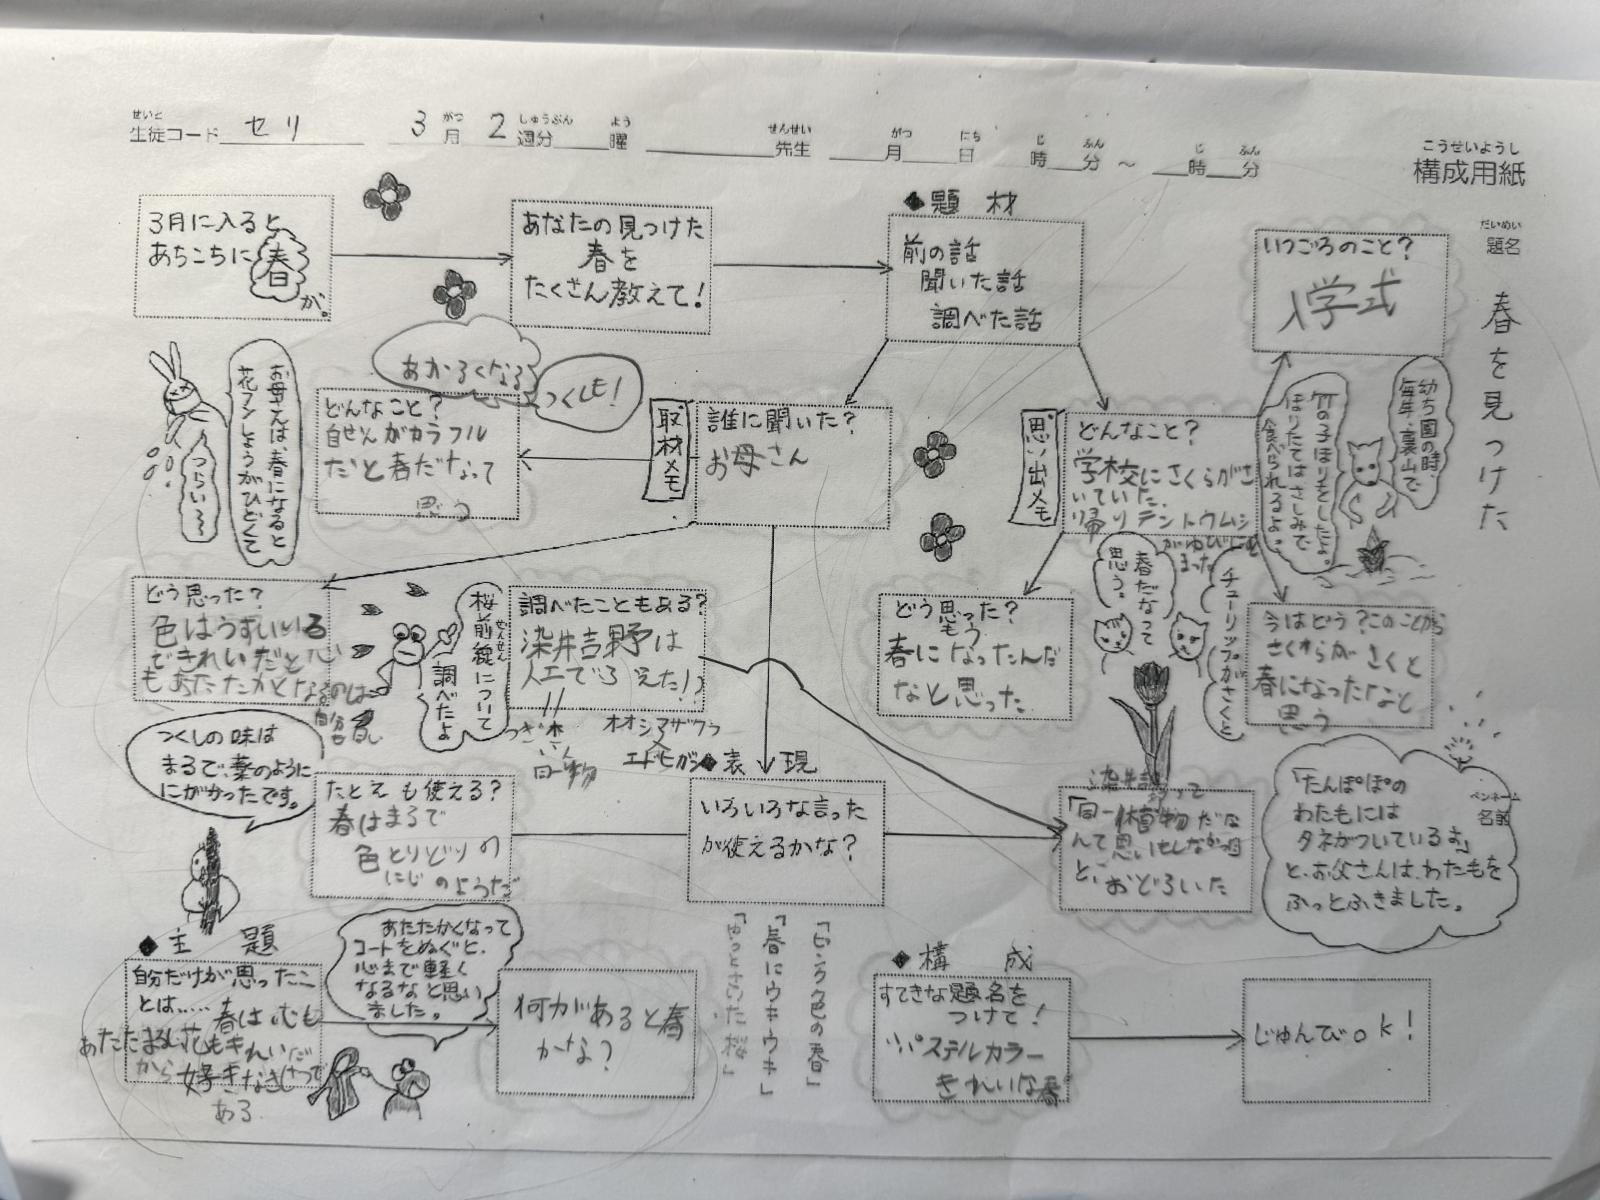 せいと
生徒コード セリ 3 がつ 月 2 しゅうぶん 週分 よう 曜 せんせい 先生 がつ 月 にち 日 じ 時 ふん 分 ～ じ 時 ふん 分
こうせいようし
構成用紙
だいめい
題名
春を見つけた
3月に入ると、
あちこちに春
が。
あなたの見つけた
春を
たくさん教えて!
◆題材
前の話
聞いた話
調べた話
いつごろのこと?
入学式
幼ち園の時、
毎年、裏山で
竹の子ほりをしたよ。
ほりたてはさしみで
食べられるよ。
思い出メモ
どんなこと?
学校にさくらがさ
いていた。
帰りテントウムシ
がゆびに
まった
取材メモ
誰に聞いた?
お母さん
あかるくなる
つくしも!
どんなこと?
自せんがカラフル
だと春だなって
思う
お母さんは、春になると
花フンしょうがひどくて
つらい～
どう思った?
色はうすいいろ
できれいだと心
もあたたかくなるのは
自分
桜前線について
ぜんせん
調べたよ
調べたこともある?
染井吉野は
人工でふえた!?
つぎ木
同一
オオシマザクラ
×
エドヒガン
どう思った?
もう
春になったんだ
なと思った
春だなって
思う。
チューリップがさくと
今はどう?このことから
さくらがさくと
春になったなと
思う
つくしの味は
まるで、薬のように
にがかったです。
たとえも使える?
春はまるで
色とりどりの
にじのようだ
◆表現
いろいろな言った
が使えるかな?
「ピンク色の春」
「春にウキウキ」
染井
「同一植物だな
んて思いもしなかった
と、おどろいた
ペンネーム
名前
「たんぽぽの
わたもには
タネがついているよ」
と、お父さんは、わたもを
ふっとふきました。
◆主題
自分だけが思ったこ
とは……
春は心も
あたたまるし花もきれいだ
から好きなきせつで
ある
あたたかくなって
コートをぬぐと、
心まで軽く
なるなと思い
ました。
何かがあると春
かな?
◆構成
すてきな題名を
つけて!
パステルカラー
きれいな春
じゅんびok!